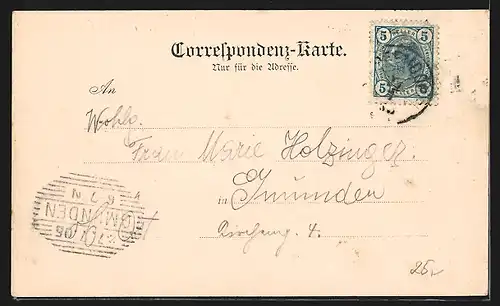 Correspondenz-Karte.
Nur für die Adresse.
5 5
5 5
An
Wohlg.
Frau Marie Holzinger
in Gmunden
Kircheng. 4.
GMUNDEN
6 7 N
25,-